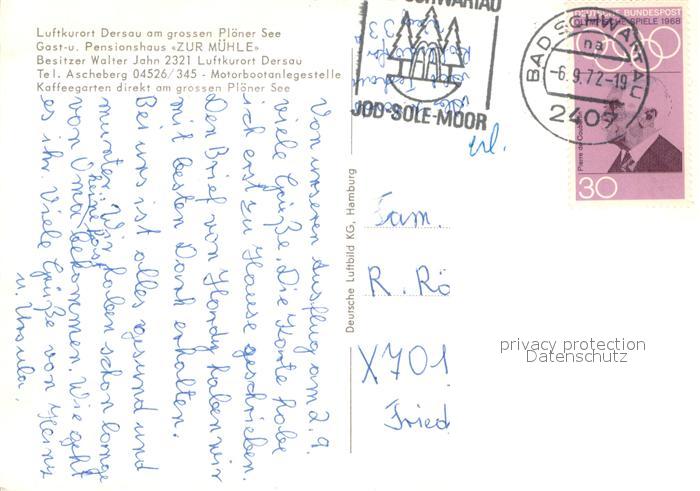 Luftkurort Dersau am grossen Plöner See
Gast-u. Pensionshaus «ZUR MÜHLE»
Besitzer Walter Jahn 2321 Luftkurort Dersau
Tel. Ascheberg 04526/345 - Motorbootanlegestelle
Kaffeegarten direkt am grossen Plöner See
Von unseren Ausflug am 2.9.
viele Grüße. Die Karte habe
ich erst zu Hause geschrieben.
Den Brief von Hardy haben wir
mit besten Dank erhalten.
Bei uns ist alles gesund und
munter. Wir haben schon lange
keine Post
von Oma bekommen. Wie geht
es ihr. Viele Grüße von Heinz
u. Ursula.
Deutsche Luftbild KG, Hamburg
SCHWARTAU
JOD-SOLE-MOOR
BAD SCHWARTAU
na
-6.9.72-19
2407
DEUTSCHE BUNDESPOST
OLYMPISCHE SPIELE 1968
Pierre de Coubertin
30
Fam.
R. Rö
X701
Fried
privacy protection
Datenschutz